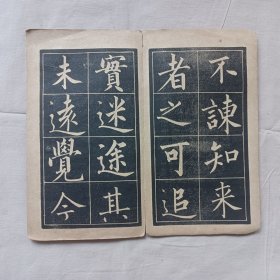 不諫知来
者之可追
實迷途其
未遠覺今